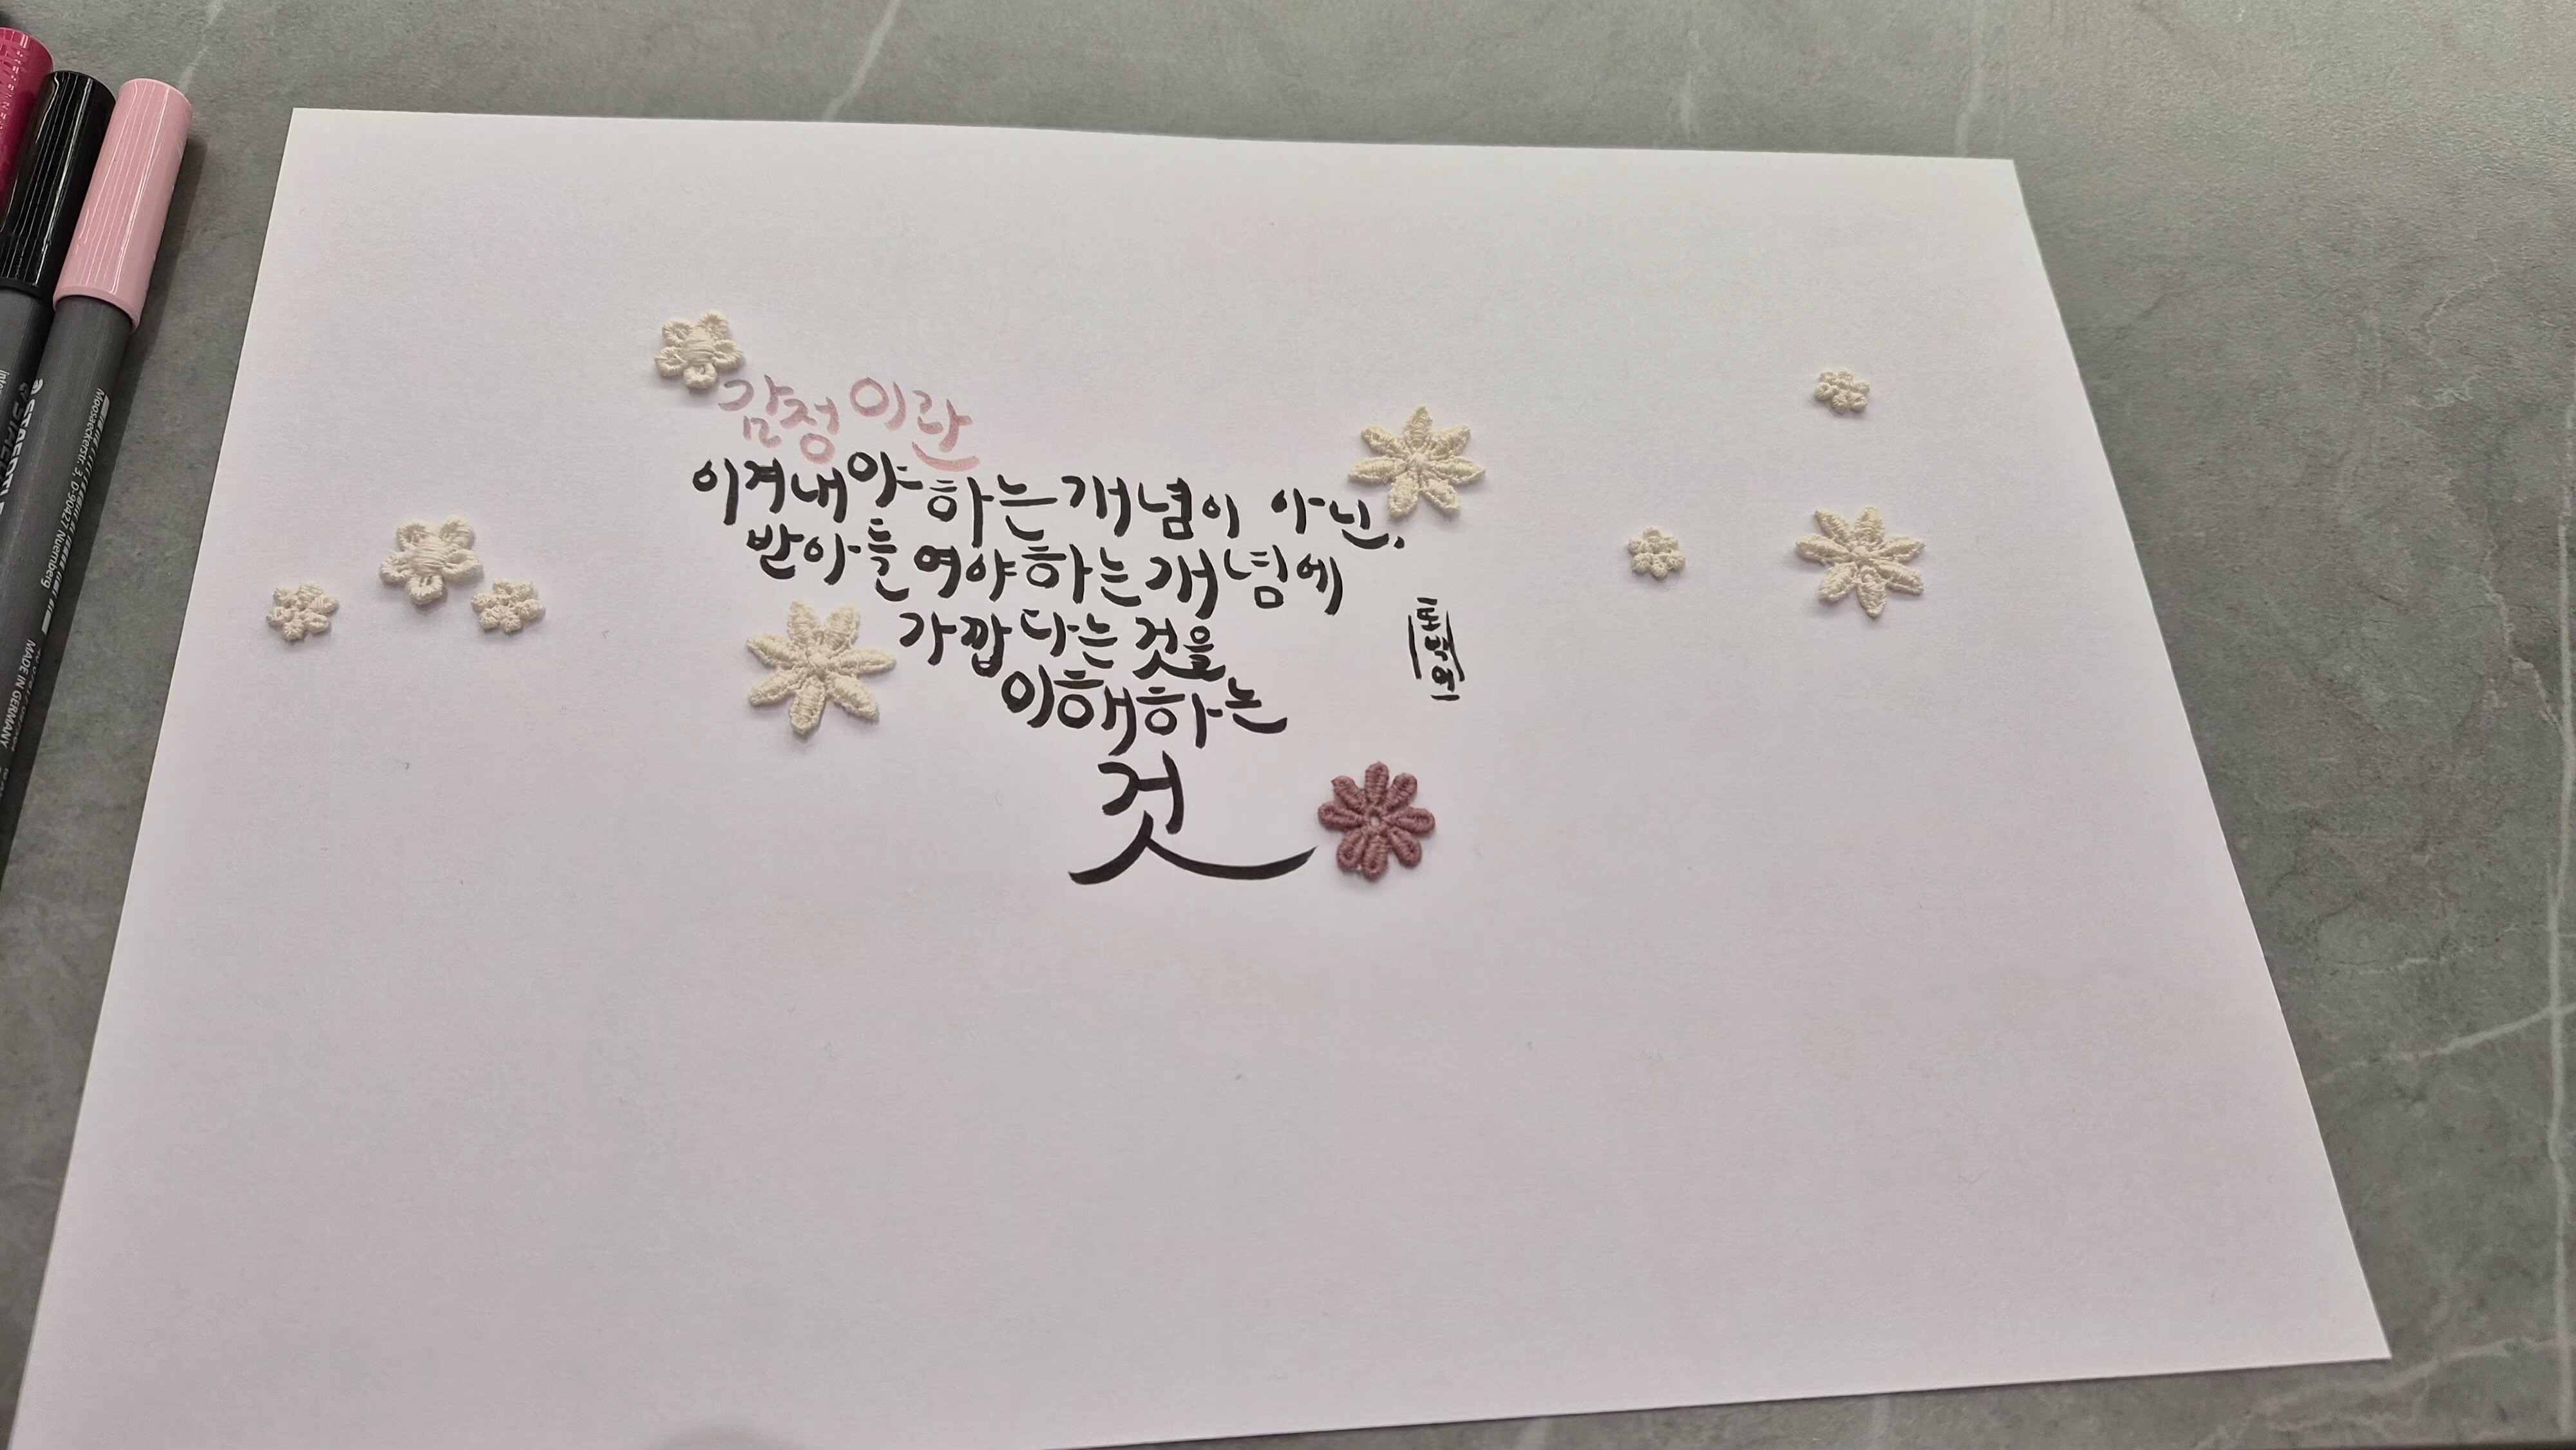 감정이란
이겨내야 하는 개념이 아닌.
받아들여야하는개념에
가깝다는 것을
이해하는
것
STAEDTLER
Moosaeckerstr. 3, D-90427 Nuernberg
MADE IN GERMANY